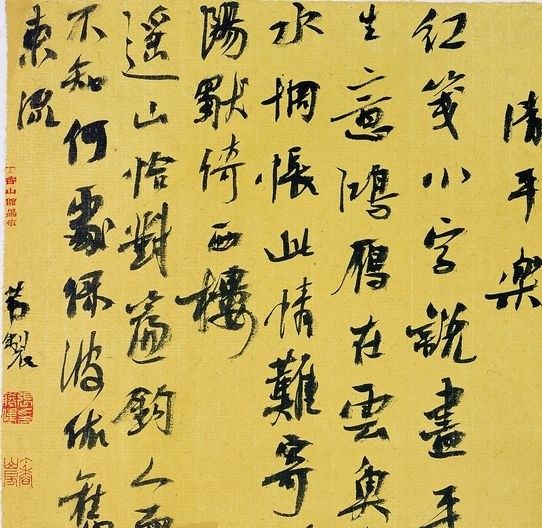 清平樂
紅箋小字說盡平
生意鴻鴈在雲魚
水惆悵此情難寄
陽獸倚西樓
遙山恰對簾鈎人面
不知何處綠波依舊
東流
製